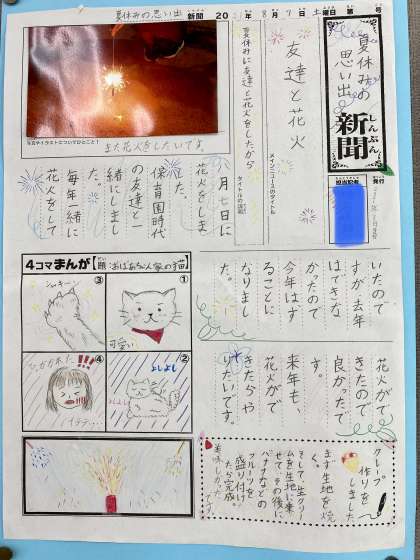 夏休みの思い出 新聞 20 年 8月7日土曜日 第 号
夏休みの
思い出
新聞
しんぶん
担当記者
発行
メインニュースのタイトル
友達と花火
タイトルの説明
夏休みに友達と花火をしたから
写真やイラストについてひとこと！
また花火をしたいです。
八月七日に
花火をしま
した。
保育園時代
の友達と一
緒にしまし
た。
毎年一緒に
花火をして
いたので
すが去年
はできな
かったので
今年はす
ることに
なりまし
た。
花火がで
きたので
良かったで
す。
来年も、
花火がで
きたらや
りたいです。
4コマまんが【題：おばあちゃん家の猫】
①
可愛い
②
よしよし
よしよし
③
④
ひっかかれた!!!
イテテ…
クレープ
作りを
しました
まず生地を焼
く。
そして生クリー
ムを生地に乗
せて、その後に
バナナなどの
フルーツを
盛り付け
たら完成。
美味しかった
です。